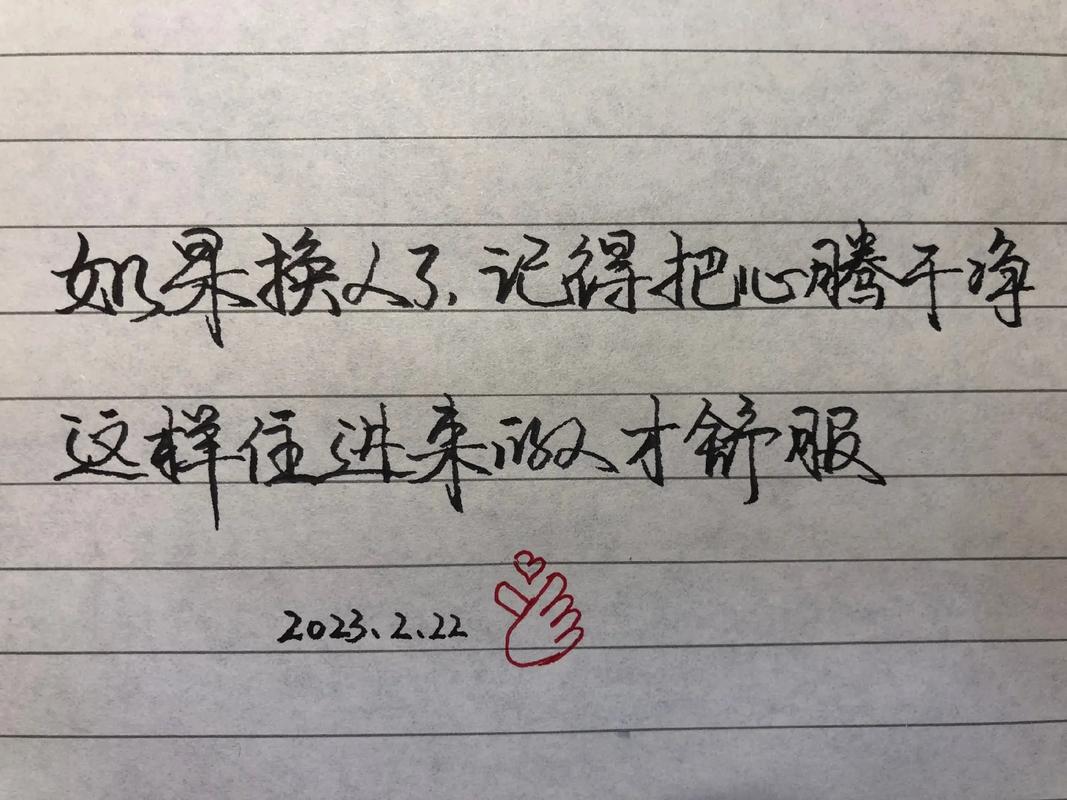 如果换人了、记得把心腾干净
这样住进来的人才舒服
2023.2.22